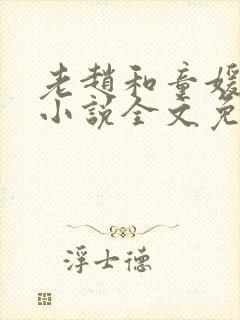 老赵和童媛
小说全文免
浮士德